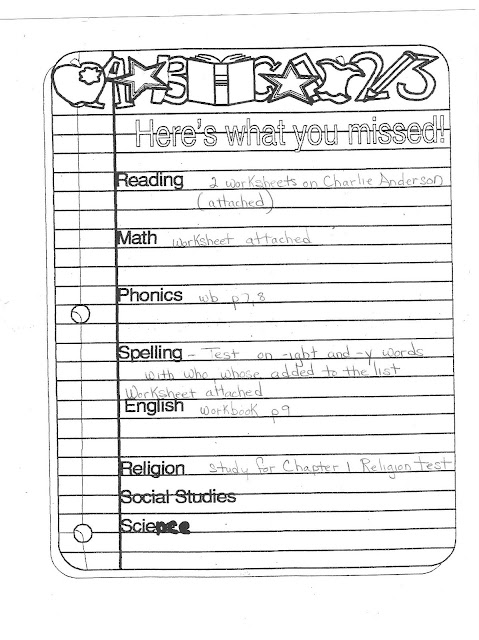 A B C 1 2 3
Here's what you missed!
Reading 2 worksheets on Charlie Anderson
(attached)
Math worksheet attached
Phonics wb p 7,8
Spelling - Test on -ight and -y words
with who whose added to the list
Worksheet attached
English Workbook p 9
Religion Study for Chapter 1 Religion Test
Social Studies
Science